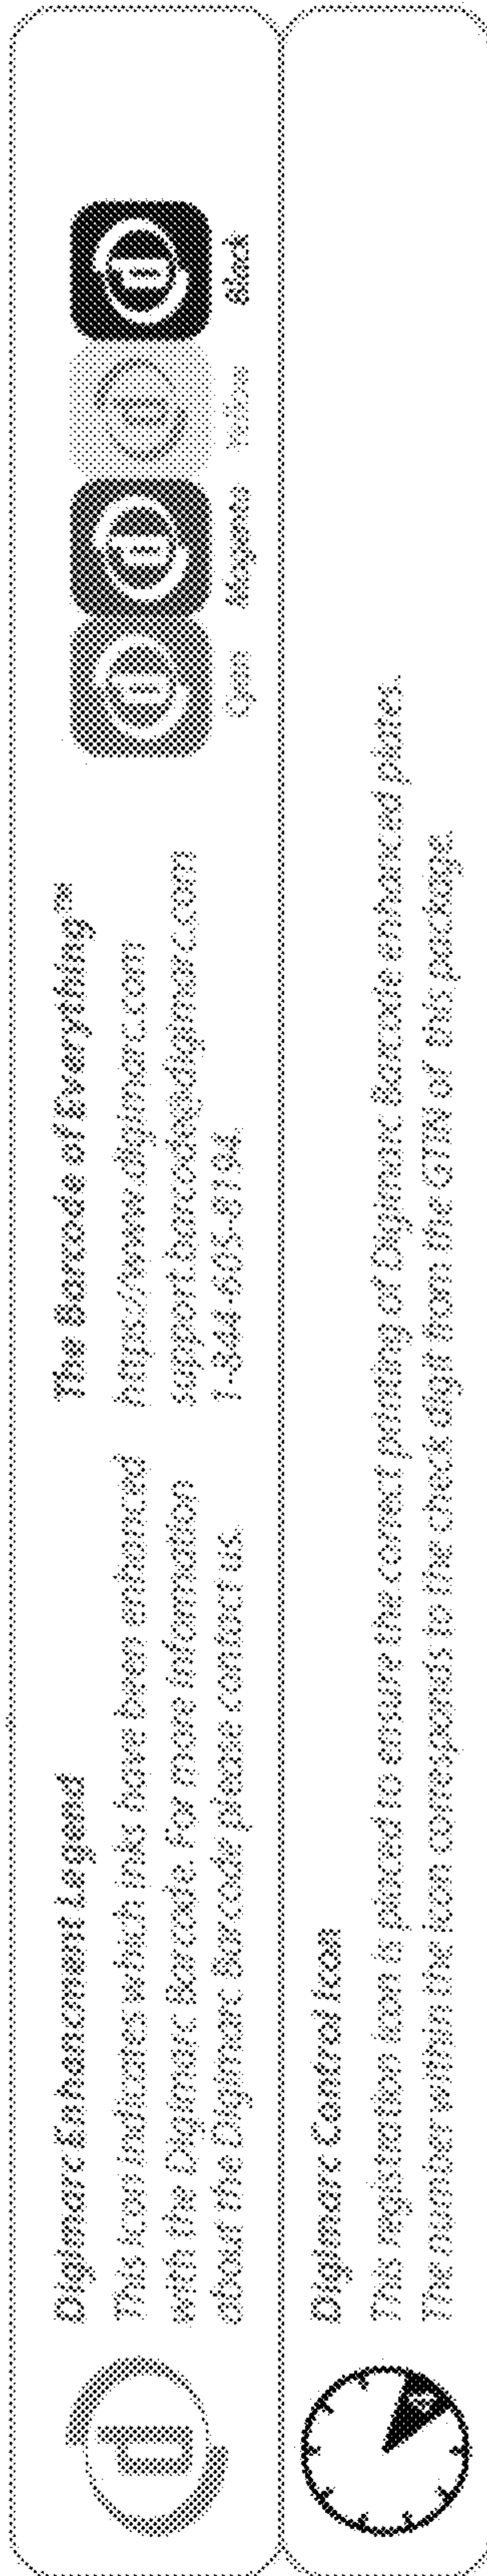 Digimarc Enhancment Legend
This icon indicates which inks have been enhanced
with the Digimarc Barcode. For more information
about the Digimarc Barcode please contact us.
The Barcode of Everything™
https://www.digimarc.com
support.barcode@digimarc.com
1-844-605-8194
Cyan
Magenta
Yellow
Black
Digimarc Control Icon
This registration icon is placed to ensure the correct printing of Digimarc Barcode enhanced plates.
The number within the icon corresponds to the check digit from the GTIN of this package.